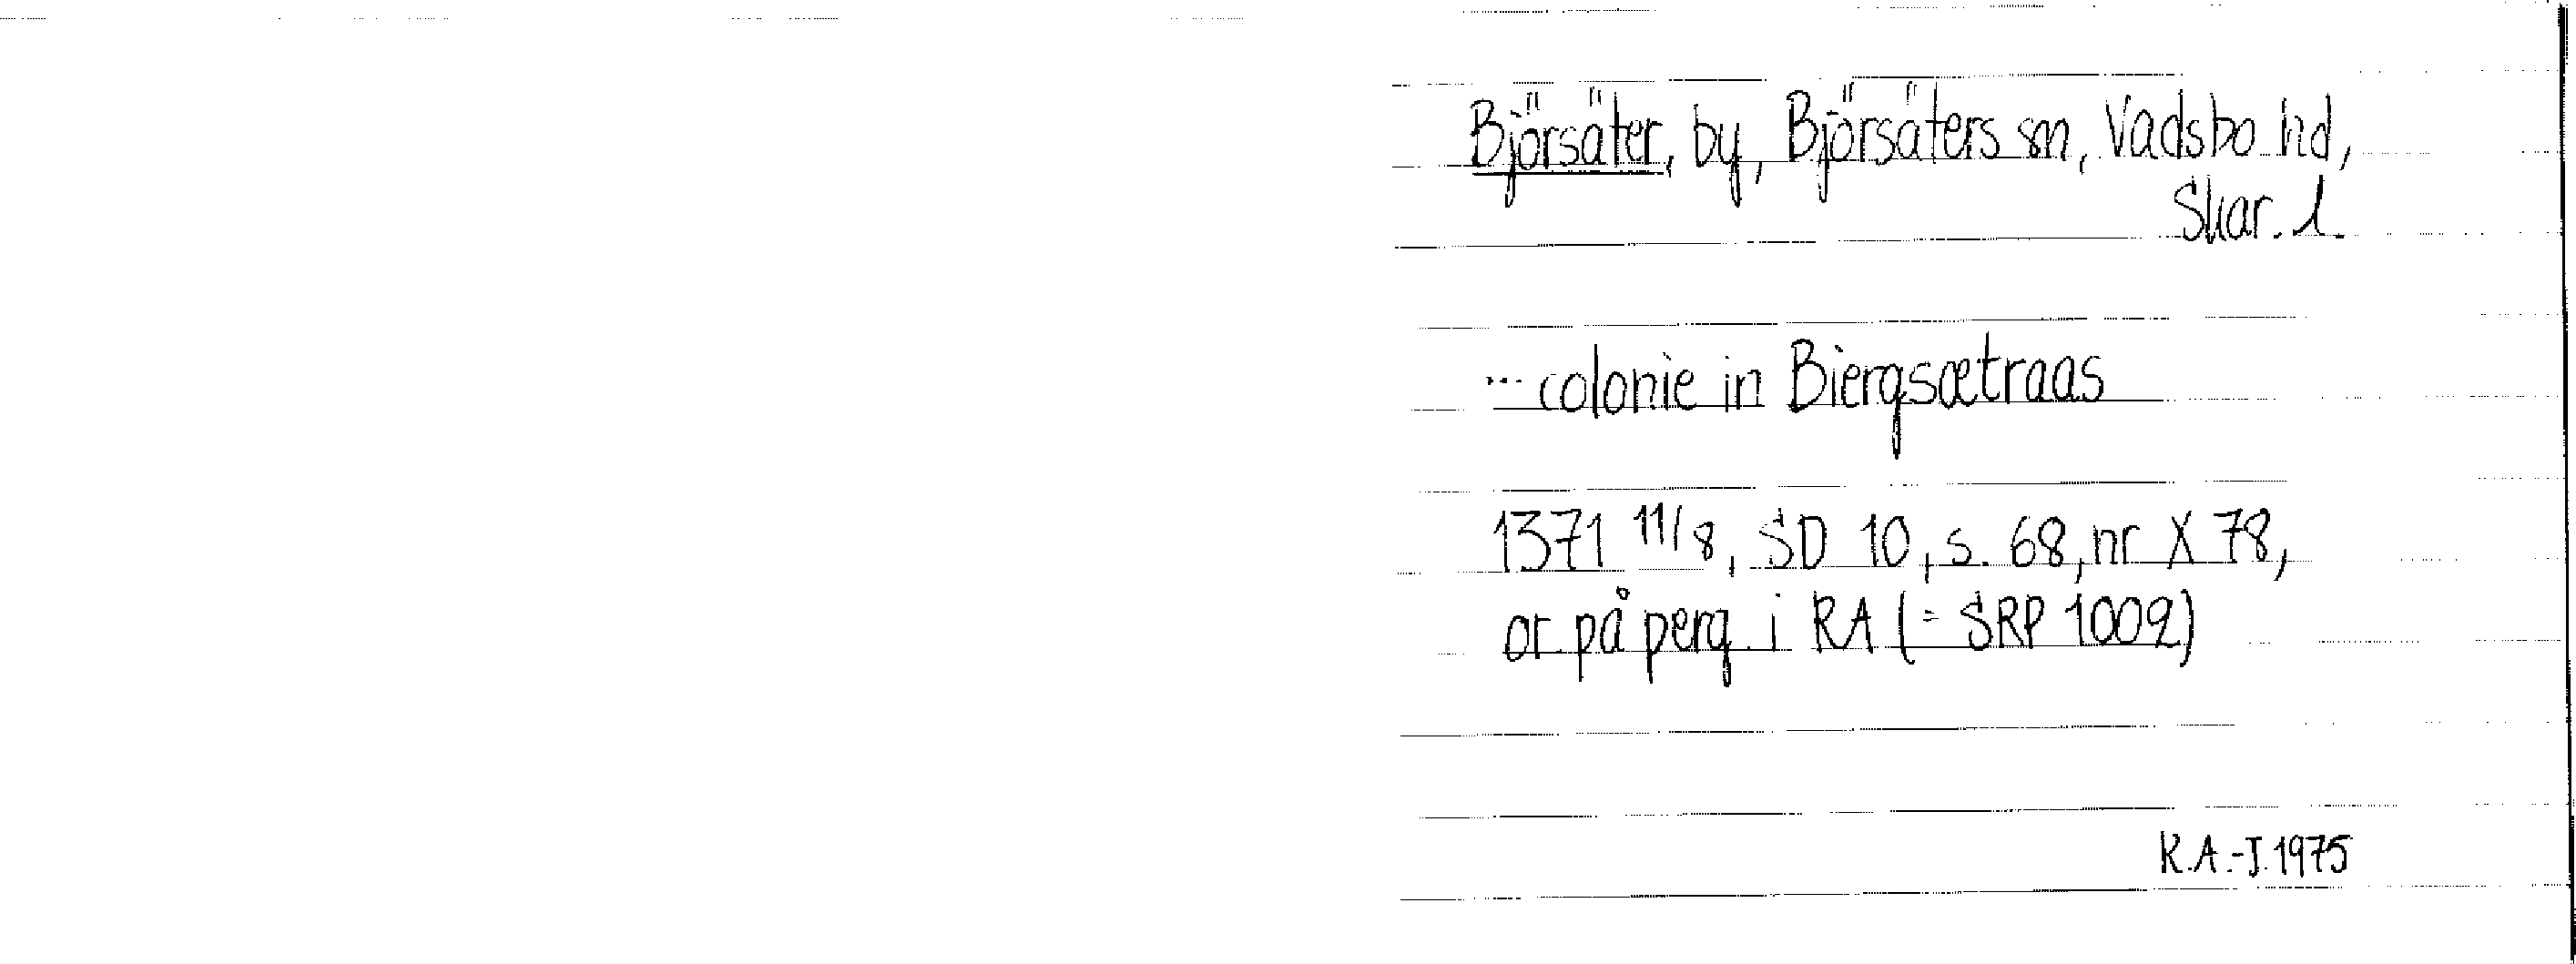 Björsäter, by, Björsäters sn, Vadsbo hd,
Skar. l.
... colonie in Biergsætraas
1371 11/8, SD 10, s. 68, nr X 78,
or på perg. i RA (= SRP 1009)
K.A.-J. 1975